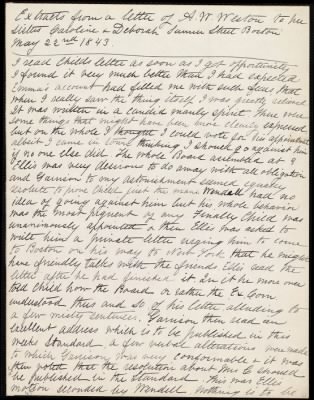 Extracts from a letter of A. W. Weston to her
sisters Caroline & Deborah Sumner Street Boston
May 22nd 1843.
I read Childs letter as soon as I got opportunity
I found it very much better than I had expected
Emma's account had filled me with such fears that
when I really saw the thing itself I was greatly relieved
It was written in a candid manly spirit. There were
some things that might have been more clearly expressed
but on the whole I thought I could vote for his appointment
albeit I came in town thinking I should go against him
if no one else did. The whole Board assembled at 9
Ellis was very desirous to do away with all obligation
and Garrison to our astonishment seemed quakey
resolute to prove Child just the man. Wendall had no
idea of going against him but his whole behavior
was the most piquent of any. Finally Child was
unanimously appointed & then Ellis was asked to
write him a private letter urging him to come
to Boston on his way to New York that he might
have friendly talks with the friends Ellis read the
letter after he had finished it. In it he more over
told Child how the Board or rather the Ex Com
understood thus and so of his letter alluding to
a few misty sentences. Garrison then read an
excellent address which is to be published in this
weeks Standard. A few verbal alterations were made
to which Garrison was very conformable & it was
then voted that the resolution about Mrs C should
be published in the Standard. This was Ellis'
motion seconded by Wendell. Nothing is to be